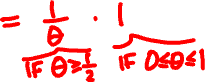 = 1/θ · 1
IF θ≥1/2 IF 0≤θ≤1